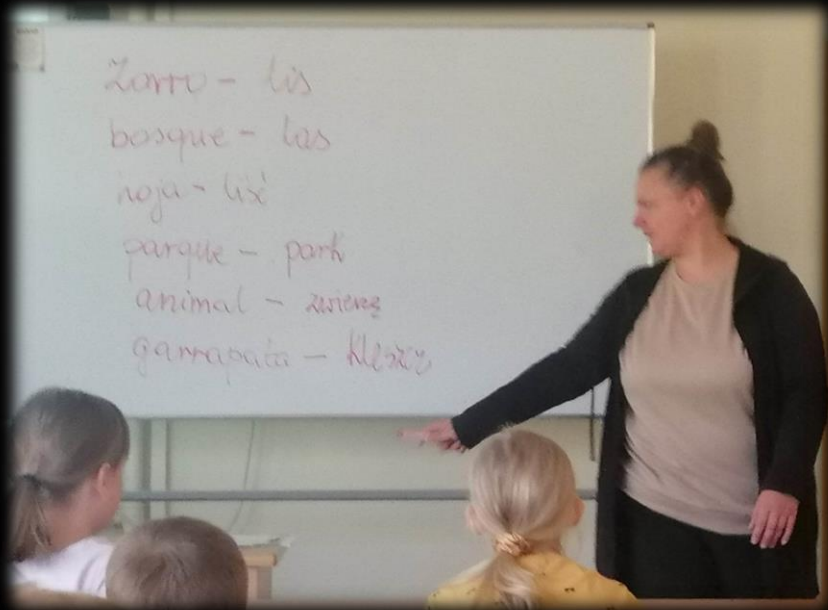 Zorro - lis
bosque - las
hoja - liść
parque - park
animal - zwierzę
garrapata - kleszcz